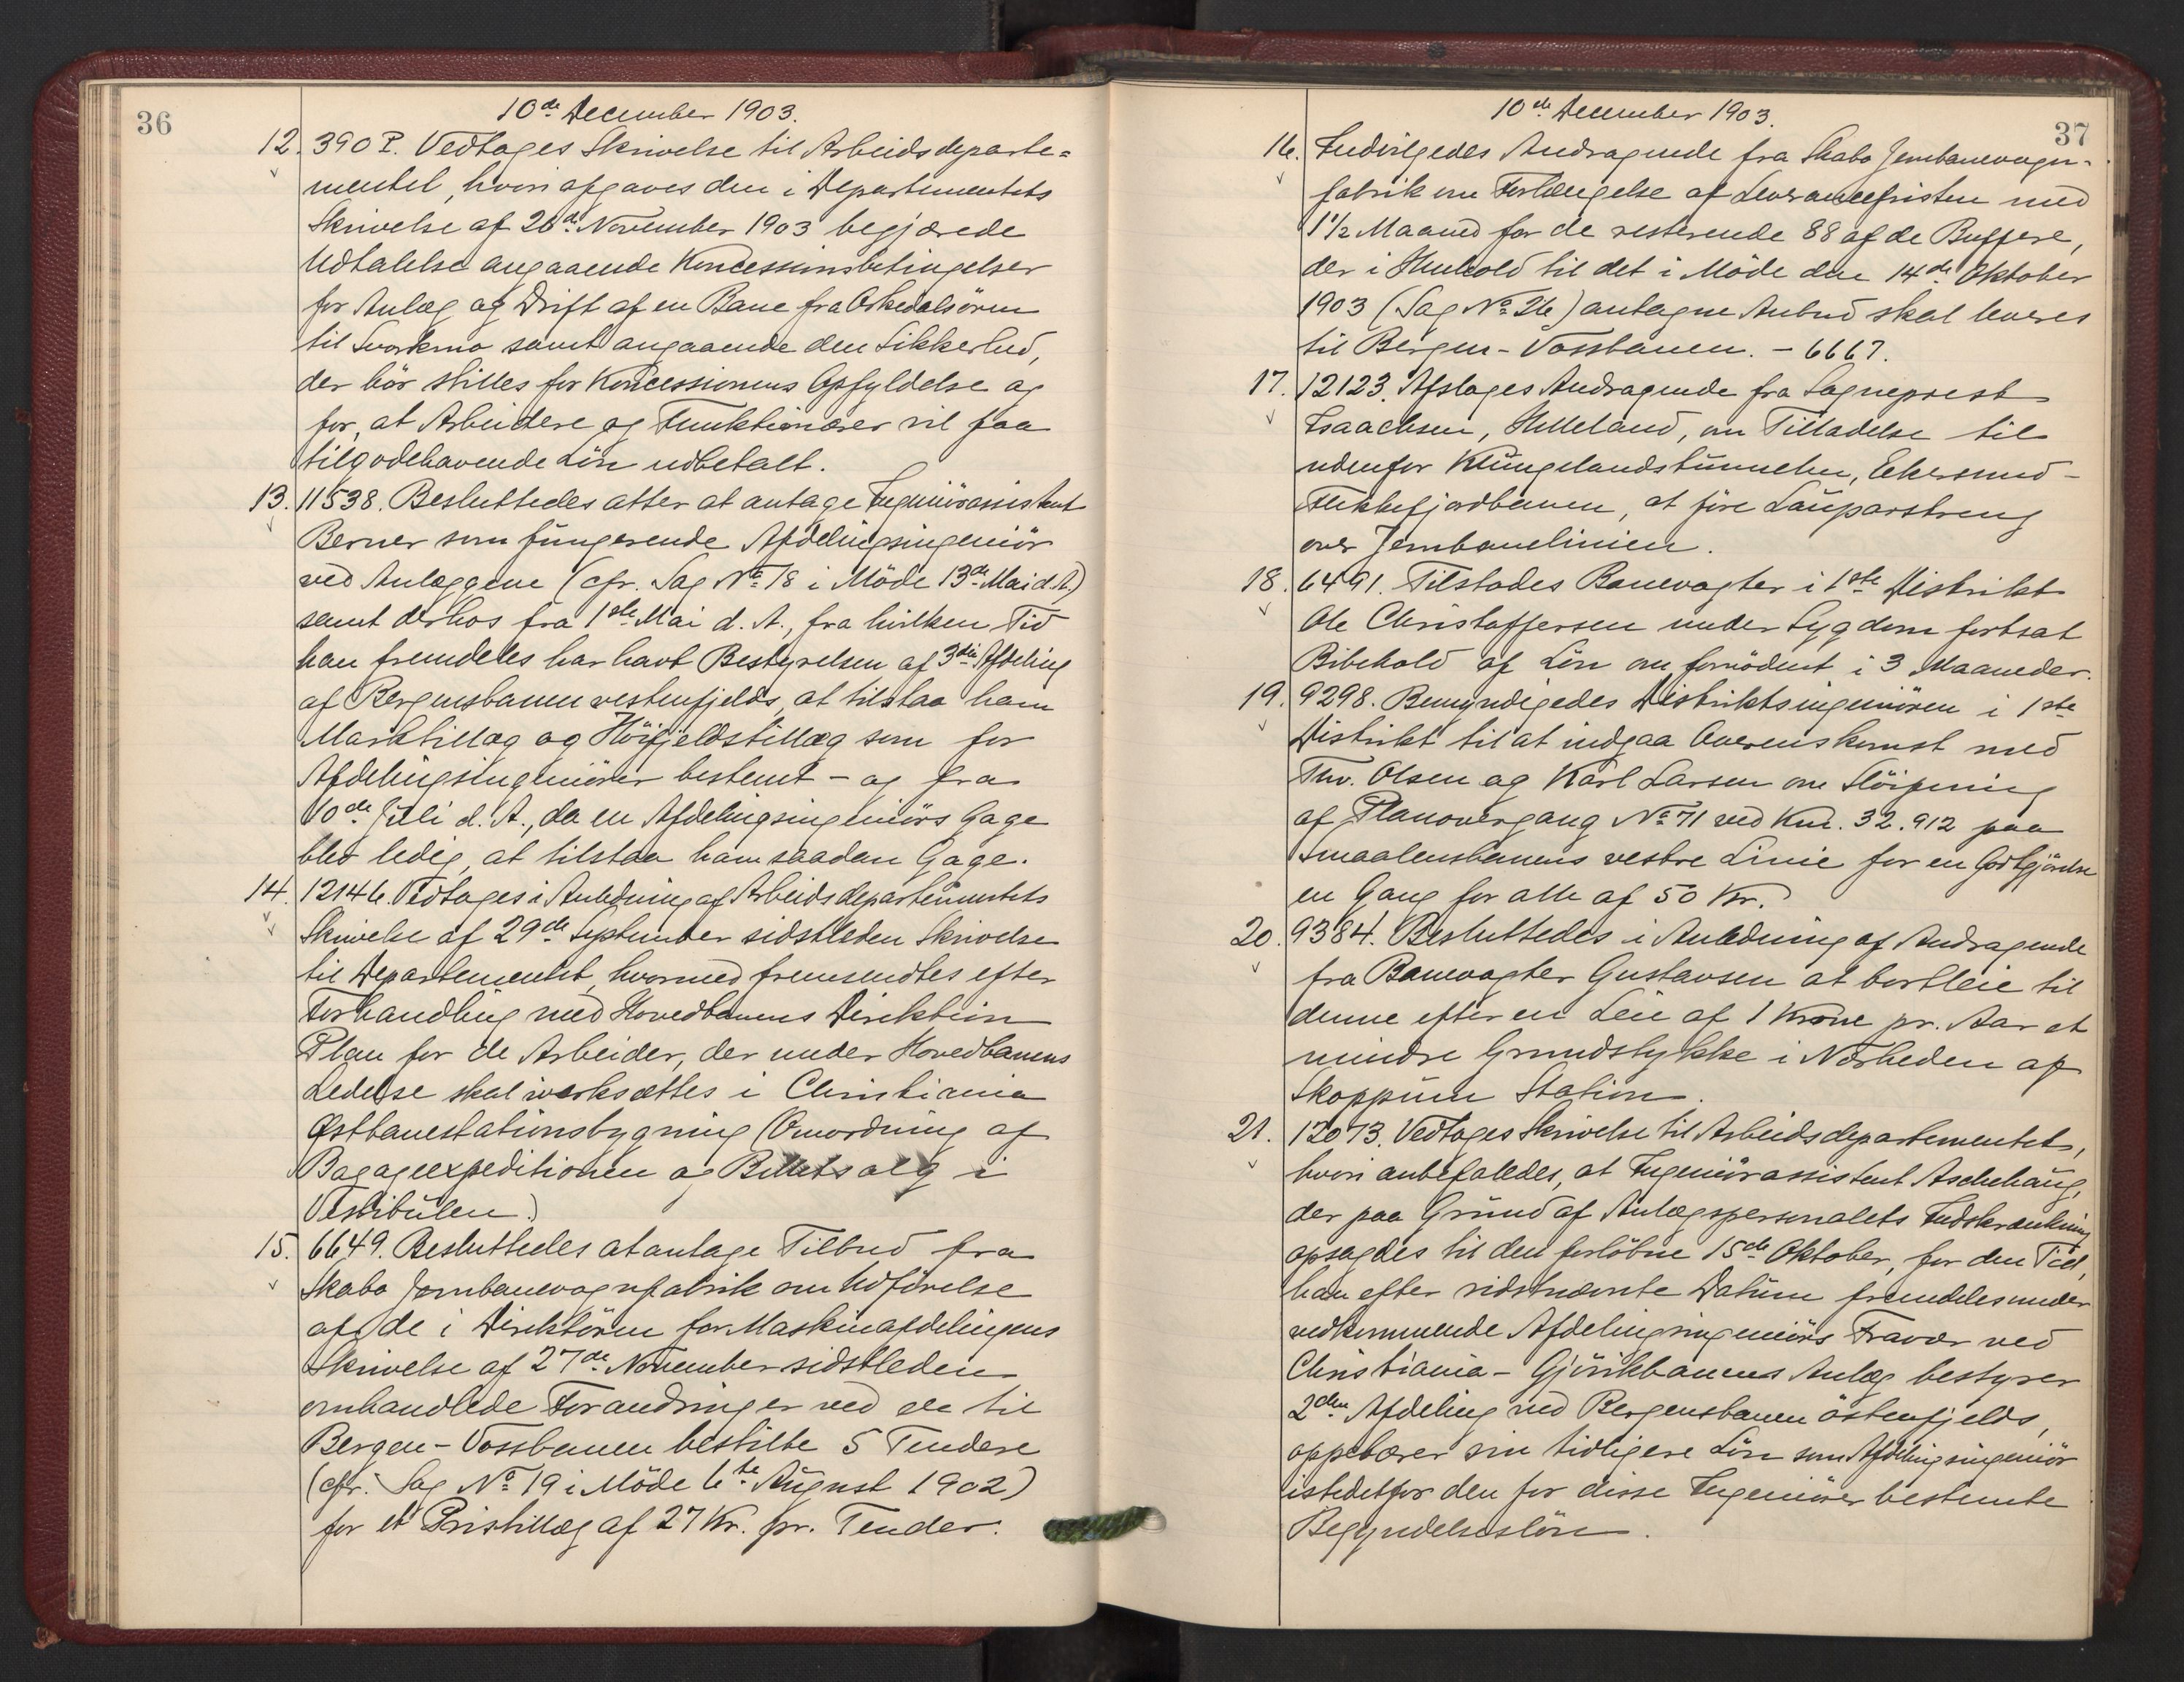 36
10de December 1903.
12. 390 P. Vedtages Skrivelse til Arbeidsdeparte=
mentet, hvori afgaves den i Departementets
Skrivelse af 26de November 1903 begjærede
Udtalelse angaaende Koncessionsbetingelser
for Anlæg og Drift af en Bane fra Orkedalsören
til Svorkmo samt angaaende den Sikkerhed,
der bör stilles for Koncessionens Opfyldelse og
for, at Arbeidere og Funktionærer vil faa
tilgodehavende Lön udbetalt.
13. 11538. Besluttedes atter at antage Ingeniörassistent
Berner som fungerende Afdelingsingeniör
ved Anlæggene (cfr. Sag No 18 i Möde 13de Mai d. A.)
samt derhos fra 1ste Mai d. A., fra hvilken Tid
han fremdeles har havt Bestyrelsen af 3die Afdeling
af Bergensbanen vestenfjelds, at tilstaa ham
Marktillæg og Höifjeldstillæg som for
Afdelingsingeniörer bestemt – og fra
10de Juli d. A., da en Afdelingsingeniörs Gage
blev ledig, at tilstaa ham saadan Gage.
14. 12146. Vedtoges i Anledning af Arbeidsdepartementets
Skrivelse af 29de September sidstleden Skrivelse
til Departementet, hvormed fremsendtes efter
Forhandling med Hovedbanens Direktion
Plan for de Arbeider, der under Hovedbanens
Ledelse skal iverksættes i Christiania
Østbanestationsbygning (Omordning af
Bagageexpeditionen og Billetsalg i
Vestibülen.)
15. 6649. Besluttedes at antage Tilbud fra
Skabo Jernbanevognfabrik om Udförelse
af de i Direktören for Maskinafdelingens
Skrivelse af 27de November sidstleden
omhandlede Forandringer ved de til
Bergen-Vossbanen bestilte 5 Tendere
(cfr. Sag No 19 i Möde 6te August 1902)
for et Pristillæg af 27 Kr. pr. Tender.
37
10de December 1903.
16. Indvilgedes Andragende fra Skabo Jernbanevogn-
fabrik om Forlængelse af Leverancefristen med
1 1/2 Maaned for de resterende 88 af de Buffere,
der i Henhold til det i Möde den 14de Oktober
1903 (Sag No 26) antagne Anbud skal leveres
til Bergen-Vossbanen. – 6667.
17. 12123. Afsloges Andragende fra Sogneprest
Isaachsen, Helleland, om Tilladelse til
udenfor Klüngelandstünnelen, Ekersund-
Flekkefjordbanen, at före Lauparstreng
over Jernbanelinien.
18. 6491. Tilstodes Banevogter i 1ste Distrikt
Ole Christoffersen under Sygdom fortsat
Bibehold af Lön om fornödent i 3 Maaneder.
19. 9298. Bemyndigedes Distriktsingeniören i 1ste
Distrikt til at indgaa Overenskomst med
Thv. Olsen og Karl Larsen om Slöifning
af Planovergang No 71 ved Km. 32.912 paa
Smaalensbanens vestre Linie for en Godtgjörelse
en Gang for alle af 50 Kr.
20. 9384. Besluttedes i Anledning af Andragende
fra Banevogter Gustavsen at bortleie til
denne efter en Leie af 1 Krone pr. Aar et
mindre Grundstykke i Nærheden af
Skoppum Station.
21. 12073. Vedtoges Skrivelse til Arbeidsdepartementet,
hvori anbefaledes, at Ingeniörassistent Aschehaug,
der paa Grund af Anlægspersonalets Indskrænkning
opsagdes til den forløbne 15de Oktober, for den Tid,
han efter sidstnævnte Datum fremdeles under
vedkommende Afdelingsingeniörs Fravær ved
Christiania-Gjövikbanens Anlæg bestyrer
2den Afdeling ved Bergensbanen östenfjelds,
oppebærer sin tidligere Lön som Afdelingsingeniör
istedetfor den for disse Ingeniörer bestemte
Begyndelseslön.